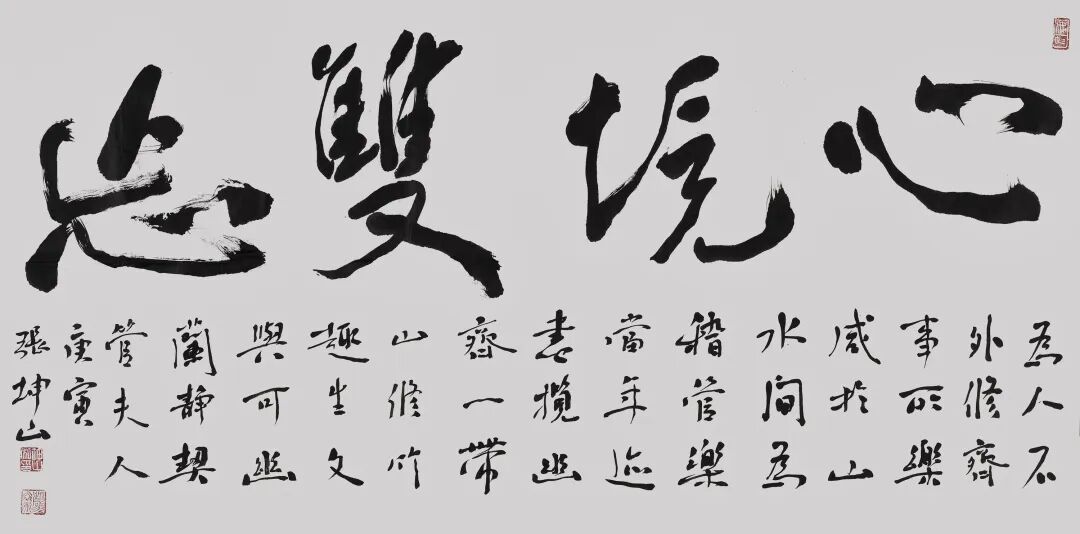 心境雙忘
為人不
外修齊
事所樂
咸於山
水間為
稽管樂
當年迹
攬幽
齊一帶
山修竹
趣生文
與可幽
蘭靜契
管夫人
庚寅
張坤山